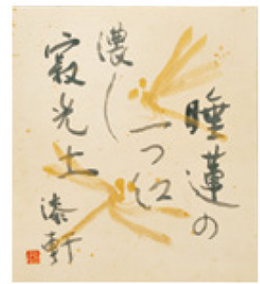 睡蓮の
一つ紅
濃し
寂光土
漆軒